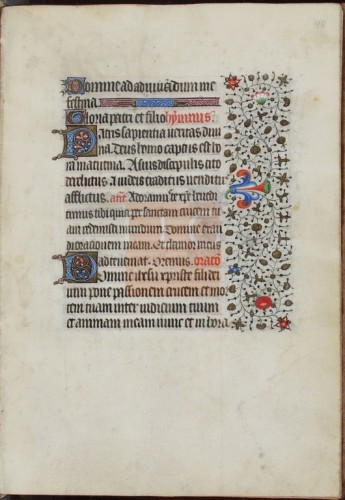 Domine ad adiuvandum me
festina.
Gloria patri et filio hymnus.
Patris sapientia veritas divi
na. Deus homo captus est ho
ra matutina. A suis discipulis cito
derelictus a iudeis traditus venditus
afflictus. ant. Adoramus te xpe et bndi
cimus tibi quia per sanctam crucem tu
am redemisti mundum. Domine exau
di orationem meam. Et clamor meus
ad te veniat. Oremus. oratio
Domine ihesu xpriste fili dei
vivi pone passionem crucem et mor
tem tuam inter iudicium tuum
et animam meam nunc et in hora